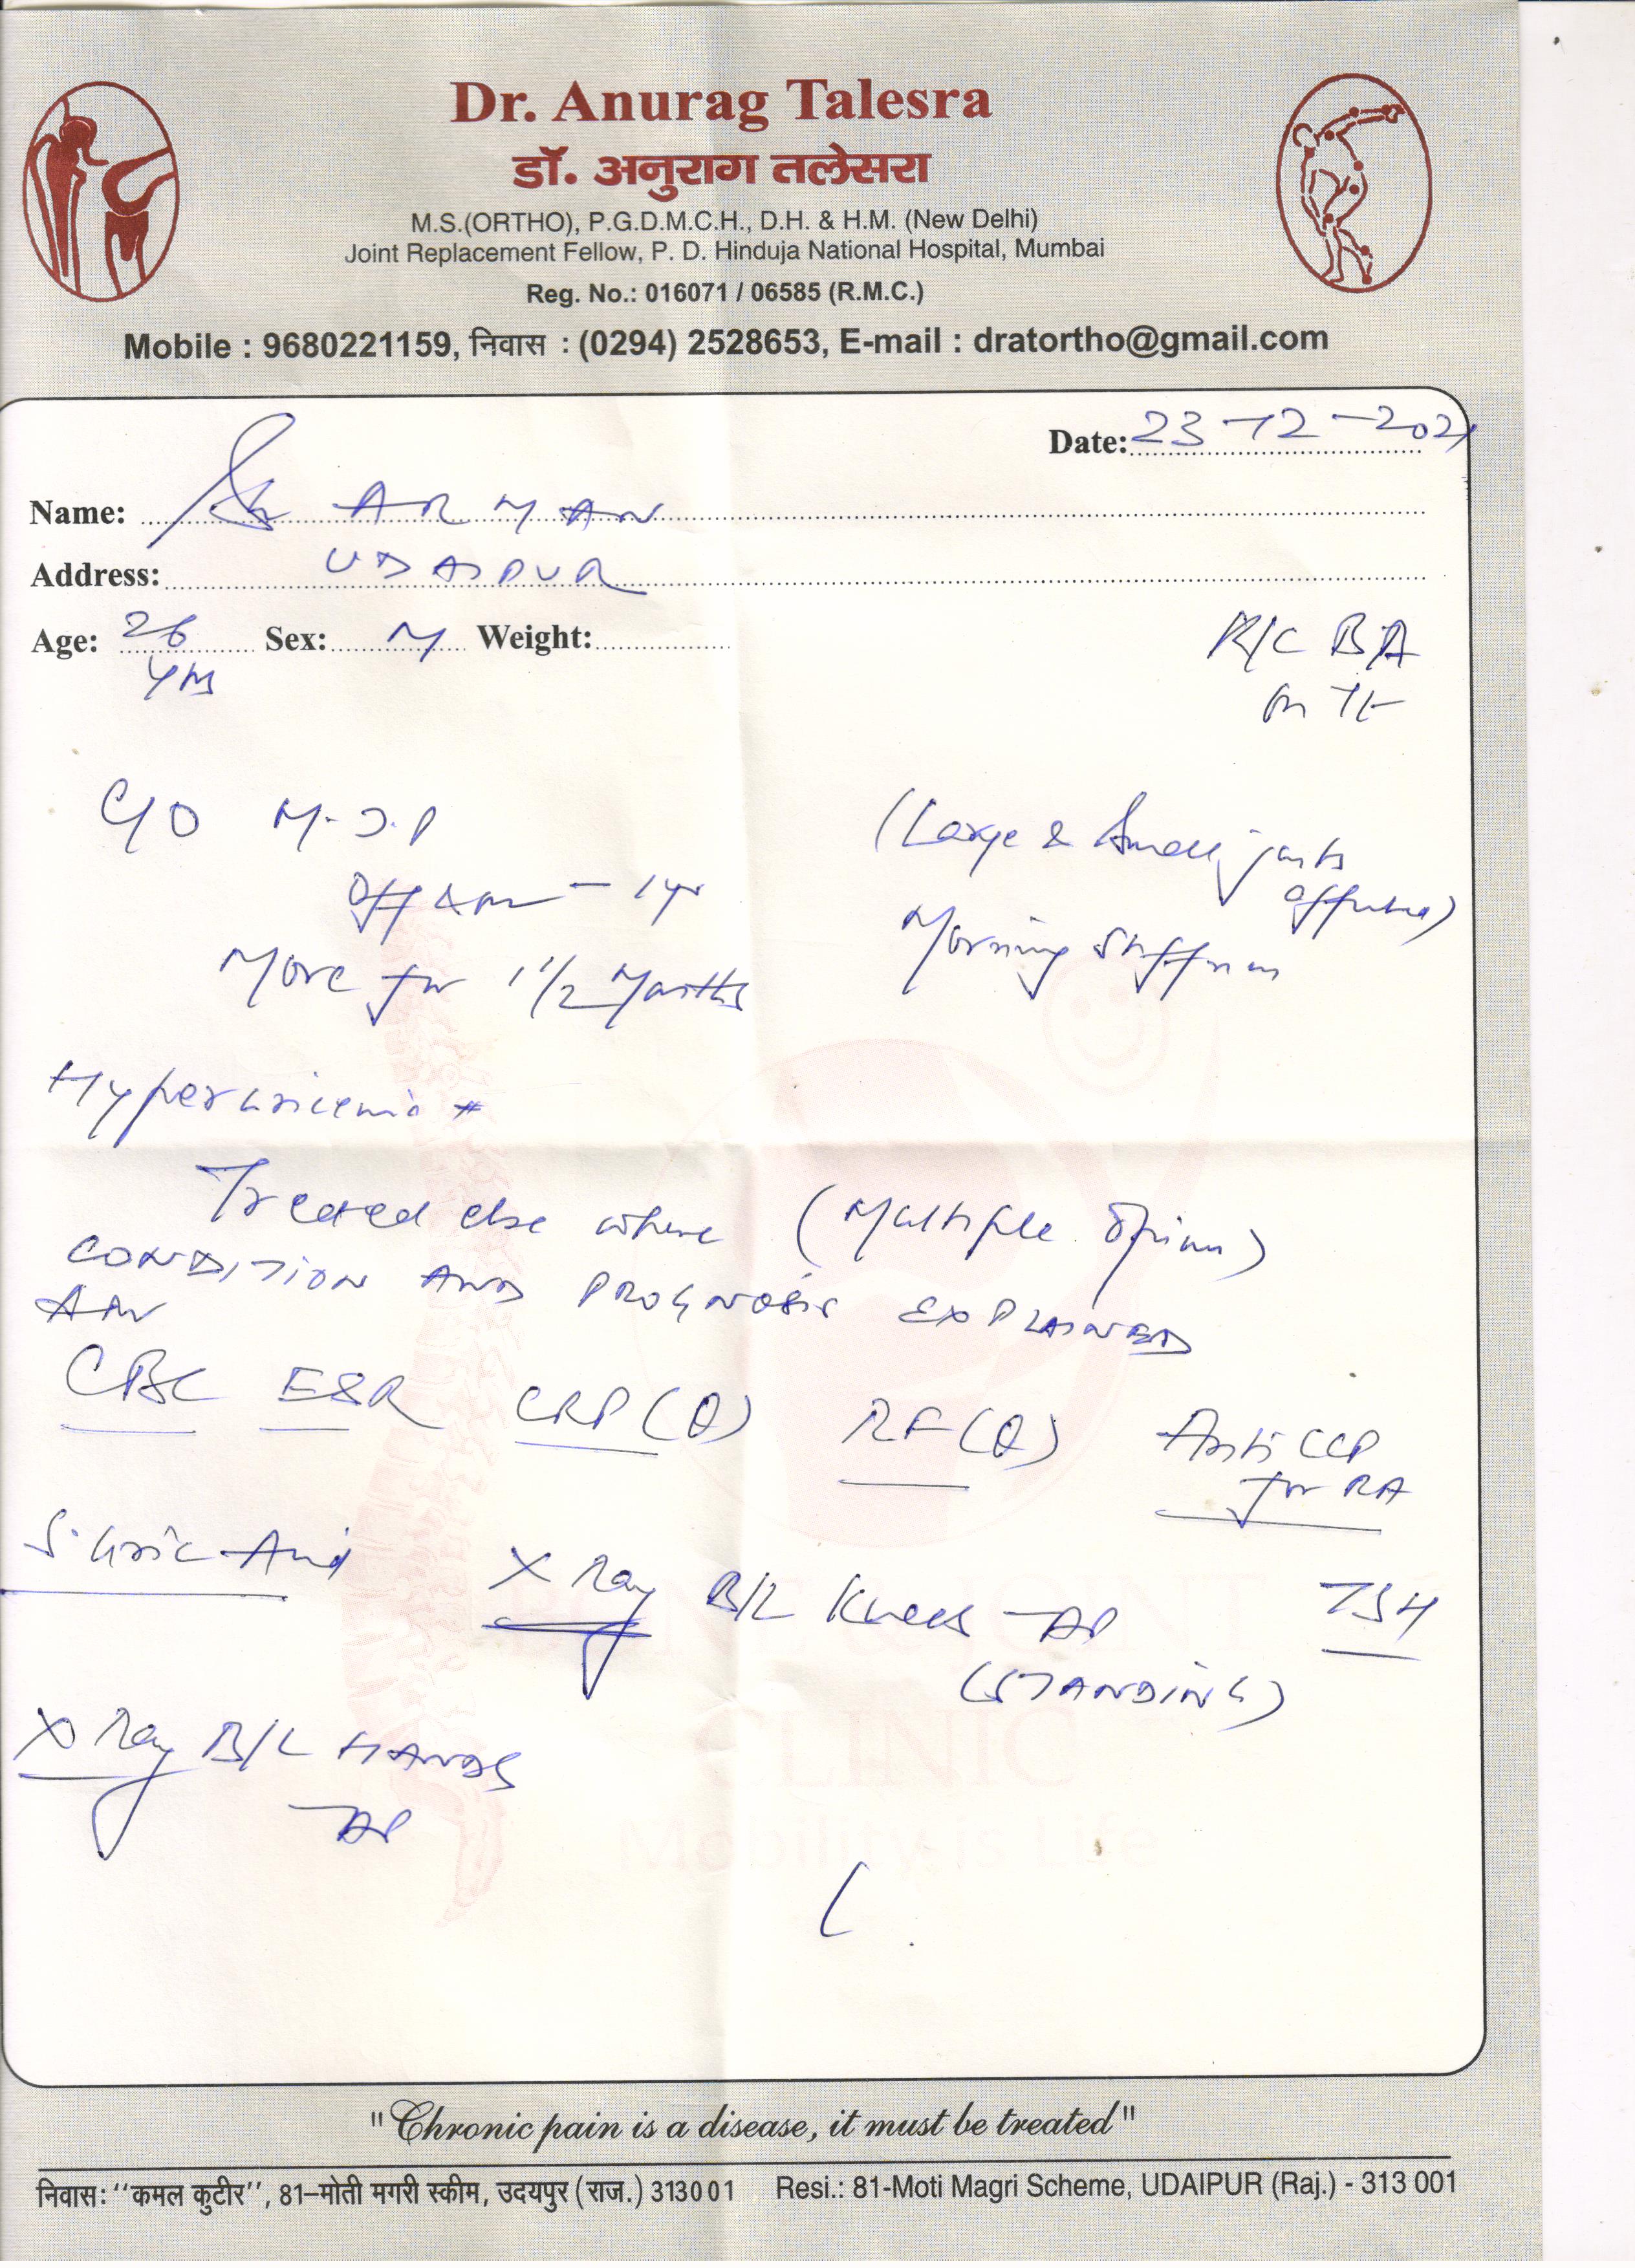 Dr. Anurag Talesra
डॉ. अनुराग तलेसरा
M.S.(ORTHO), P.G.D.M.C.H., D.H. & H.M. (New Delhi)
Joint Replacement Fellow, P. D. Hinduja National Hospital, Mumbai
Reg. No.: 016071 / 06585 (R.M.C.)
Mobile : 9680221159, निवास : (0294) 2528653, E-mail : dratortho@gmail.com
Date: 23-12-2021
Name: ARMAN
Address: UDAIPUR
Age: 26 Sex: M Weight:
yrs
K/C BA
on Tt
C/O M.J.P
Off & on - 1yr
More for 1 1/2 Months
(Large & Small joints
affected)
Morning Stiffness
Hyperuricemia +
Treated else where (Multiple Opinion)
CONDITION AND PROGNOSIS EXPLAINED
CBC ESR CRP (Q) RF (Q) Anti CCP
for RA
S. Uric Acid X Ray B/L Knees - AP TSH
(STANDING)
X Ray B/L HANDS
- AP
POLY JOINT
CLINIC
Mobility is Life
"Chronic pain is a disease, it must be treated"
निवास: ‘‘कमल कुटीर’’, 81–मोती मगरी स्कीम, उदयपुर (राज.) 313001 Resi.: 81-Moti Magri Scheme, UDAIPUR (Raj.) - 313 001